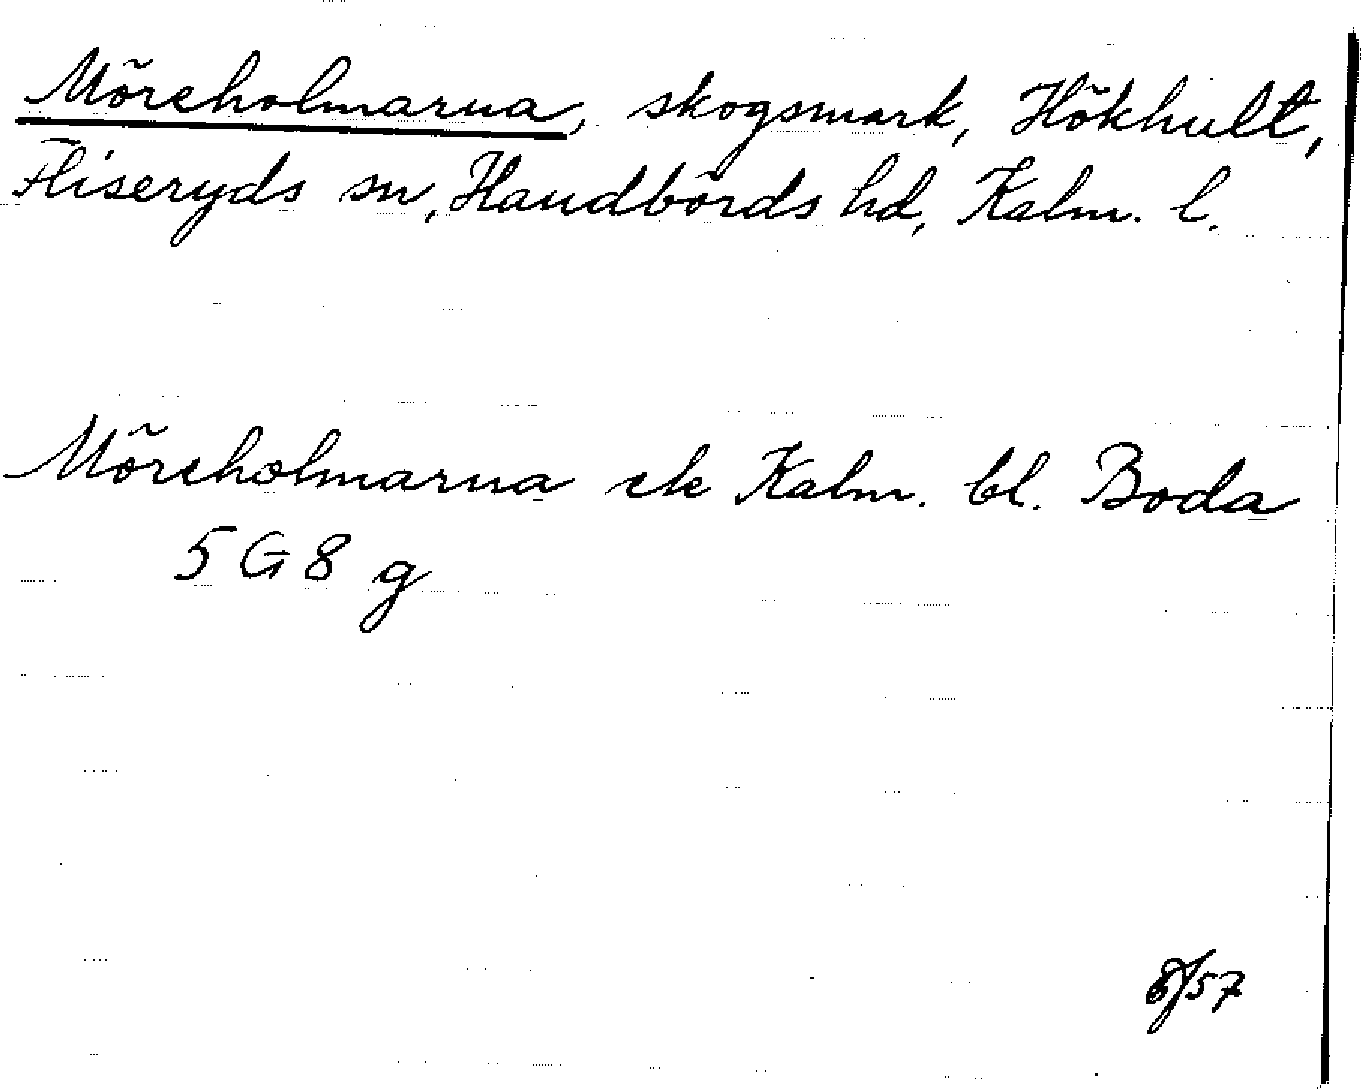 Möreholmarna, skogsmark, Hökhult,
Fliseryds sn, Handbörds hd, Kalm. l.
Möreholmarna ek Kalm. bl. Boda
5 G 8 g